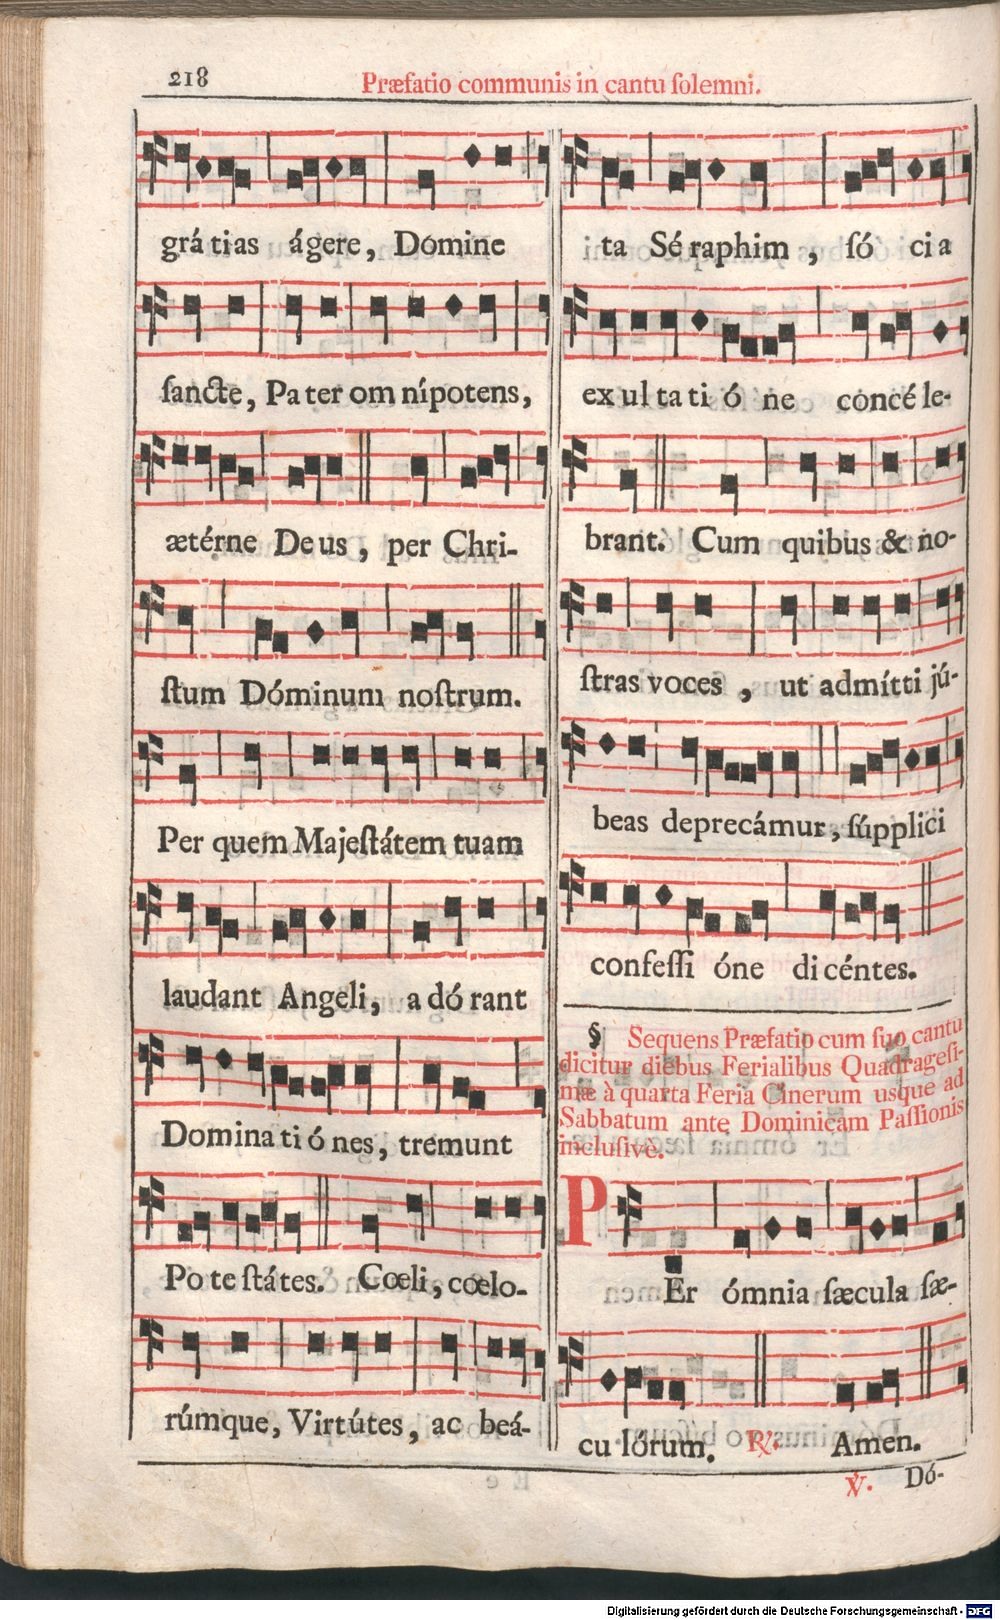 218
Præfatio communis in cantu ſolemni.
grá tias ágere, Dómine
ſancte, Pa ter om nípotens,
ætérne De us, per Chri-
ſtum Dóminum noſtrum.
Per quem Majeſtátem tuam
laudant Angeli, a dó rant
Domina ti ó nes, tremunt
Po te ſtátes. Cœli, cœlo-
rúmque, Virtútes, ac beá-
ta Sé raphim, ſó ci a
ex ul ta ti ó ne concé le-
brant. Cum quibus & no-
ſtras voces, ut admítti jú-
beas deprecámur, ſúpplici
confeſſi óne di céntes.
§ Sequens Præfatio cum ſuo cantu
dicitur diebus Ferialibus Quadrageſi-
mæ à quarta Feria Cinerum usque ad
Sabbatum ante Dominicam Paſſionis
incluſivè.
PEr ómnia ſæcula ſæ-
cu lórum. ℟. Amen.
℣. Dó-
Digitalisierung gefördert durch die Deutsche Forschungsgemeinschaft - DFG